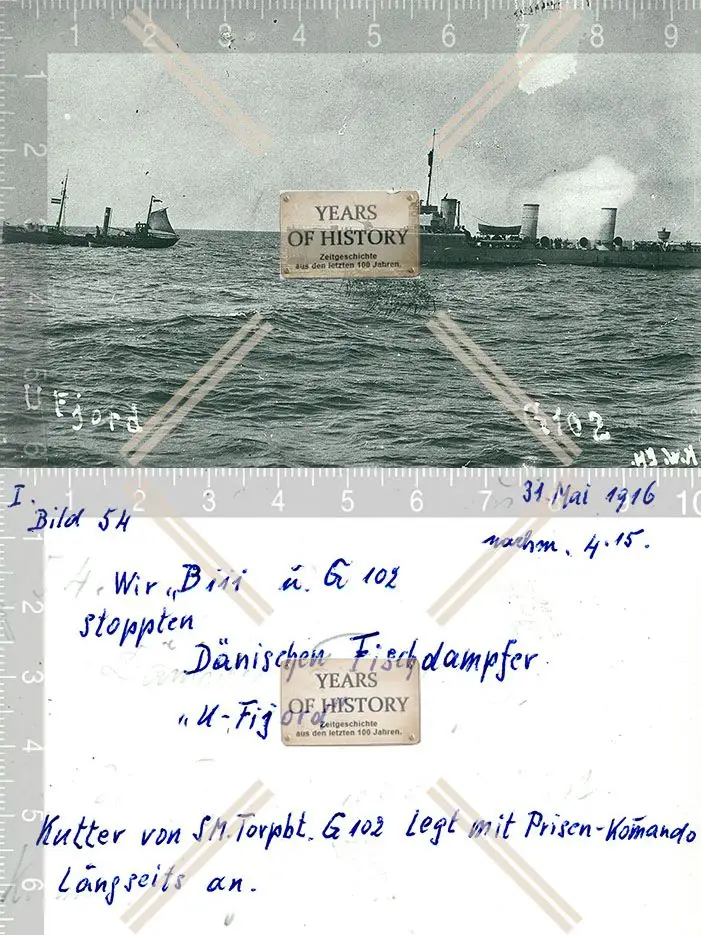 2 3 4 5 6 7 8 9
1
2
YEARS
OF HISTORY
Zeitgeschichte
aus den letzten 100 Jahren.
4
5
6
Fjord
G102
K.W.
I.
Bild 54
2 3 4 5 6 7 8 9 10
31. Mai 1916
nachm. 4.15.
Wir „B111 u. G 102
stoppten
Dänischen Fischdampfer
YEARS
OF HISTORY
Zeitgeschichte
aus den letzten 100 Jahren.
„U-Fjord"
2
3
4
5
6
Kutter von S.M.Torpbt. G 102 legt mit Prisen-Komando
Längseits an.